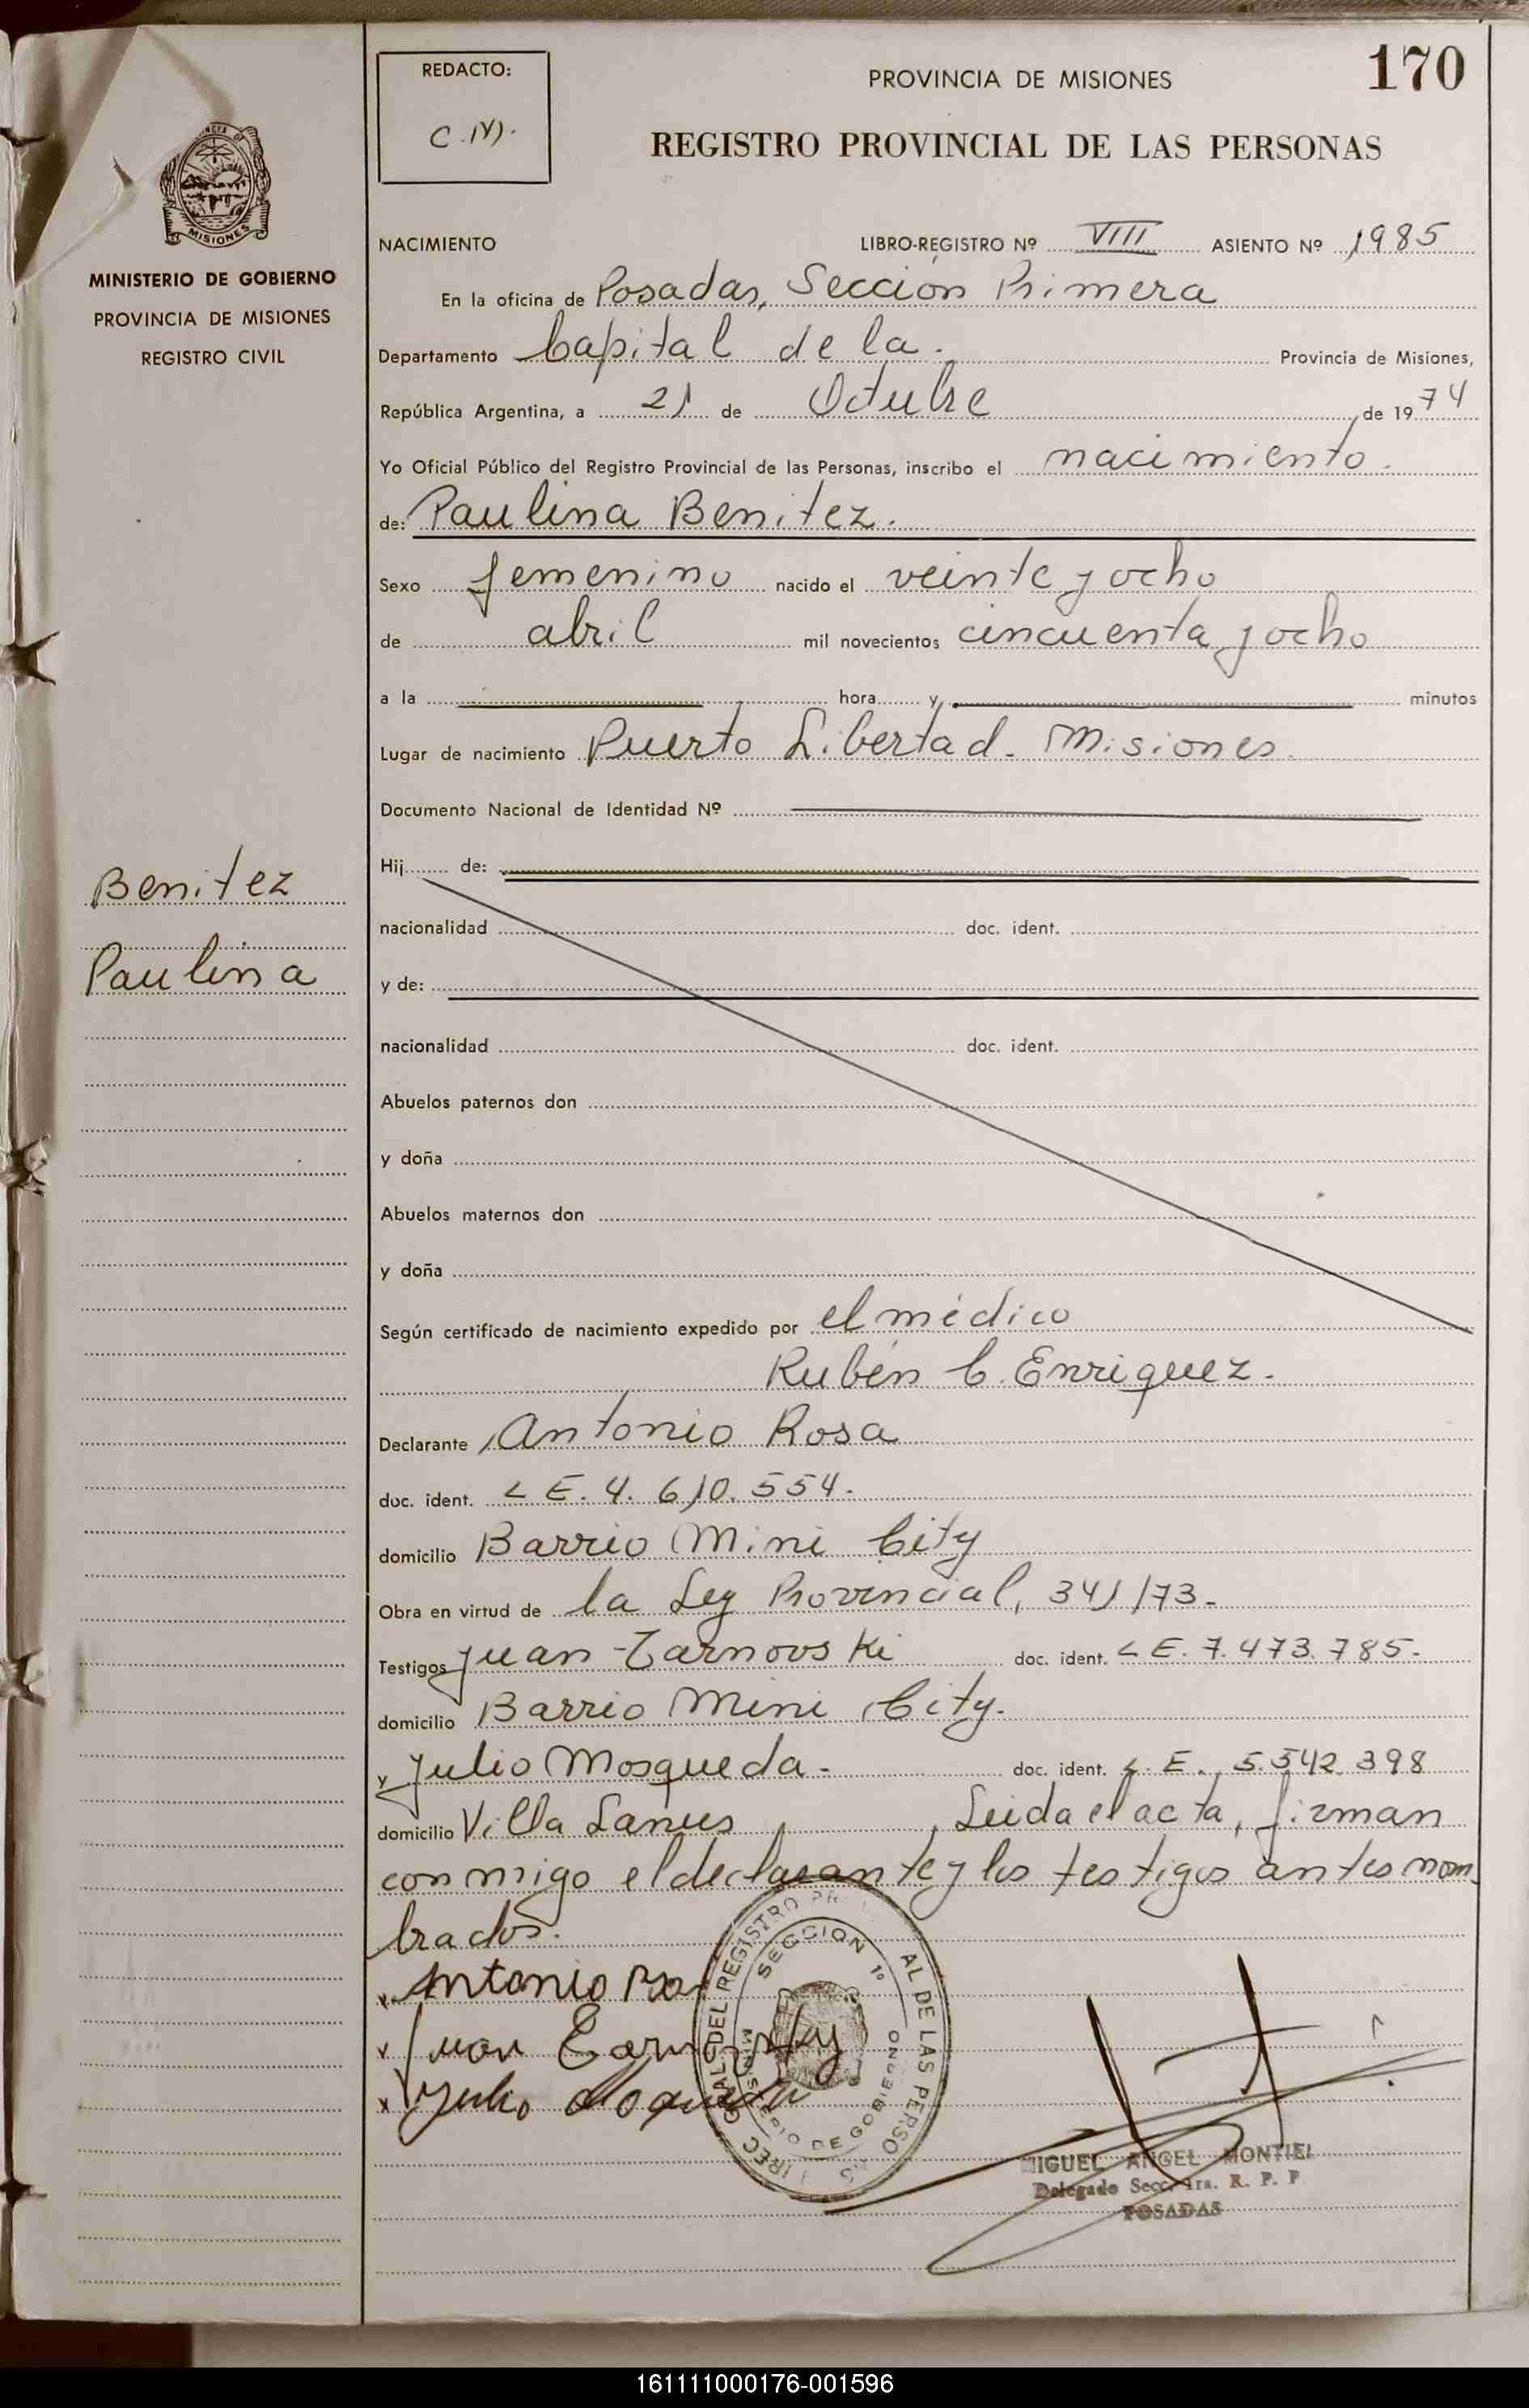 REDACTO:
PROVINCIA DE MISIONES
170
REGISTRO PROVINCIAL DE LAS PERSONAS
MISIONES
MINISTERIO DE GOBIERNO
PROVINCIA DE MISIONES
REGISTRO CIVIL
Benitez
Paulina
NACIMIENTO LIBRO-REGISTRO Nº VIII ASIENTO Nº 1985
En la oficina de Posadas, Sección Primera
Departamento Capital de la. Provincia de Misiones,
República Argentina, a 21 de Octubre de 1974
Yo Oficial Público del Registro Provincial de las Personas, inscribo el nacimiento.
de: Paulina Benitez.
Sexo femenino nacido el veinte y ocho
de abril mil novecientos cincuenta y ocho
a la hora y minutos
Lugar de nacimiento Puerto Libertad - Misiones.
Documento Nacional de Identidad Nº
Hij de:
nacionalidad doc. ident.
y de:
nacionalidad doc. ident.
Abuelos paternos don
y doña
Abuelos maternos don
y doña
Según certificado de nacimiento expedido por el médico
Rubén C. Enriquez.
Declarante Antonio Rosa
doc. ident. L E. 4. 610. 554.
domicilio Barrio Mini City
Obra en virtud de la Ley Provincial, 341/73-
Testigos Juan Tarnovski doc. ident. L E. 7.473.785.
domicilio Barrio Mini City.
y Julio Mosqueda. doc. ident. L. E. 5.542.398
domicilio Villa Lanus, Leida el acta, firman
conmigo el declarante y los testigos antes nom
brados.
x Antonio
x Juan
x Julio
SECCION 1º
MIGUEL ANGEL MONTIEL
Delegado Secc. 1ra. R. P. P
POSADAS
161111000176-001596